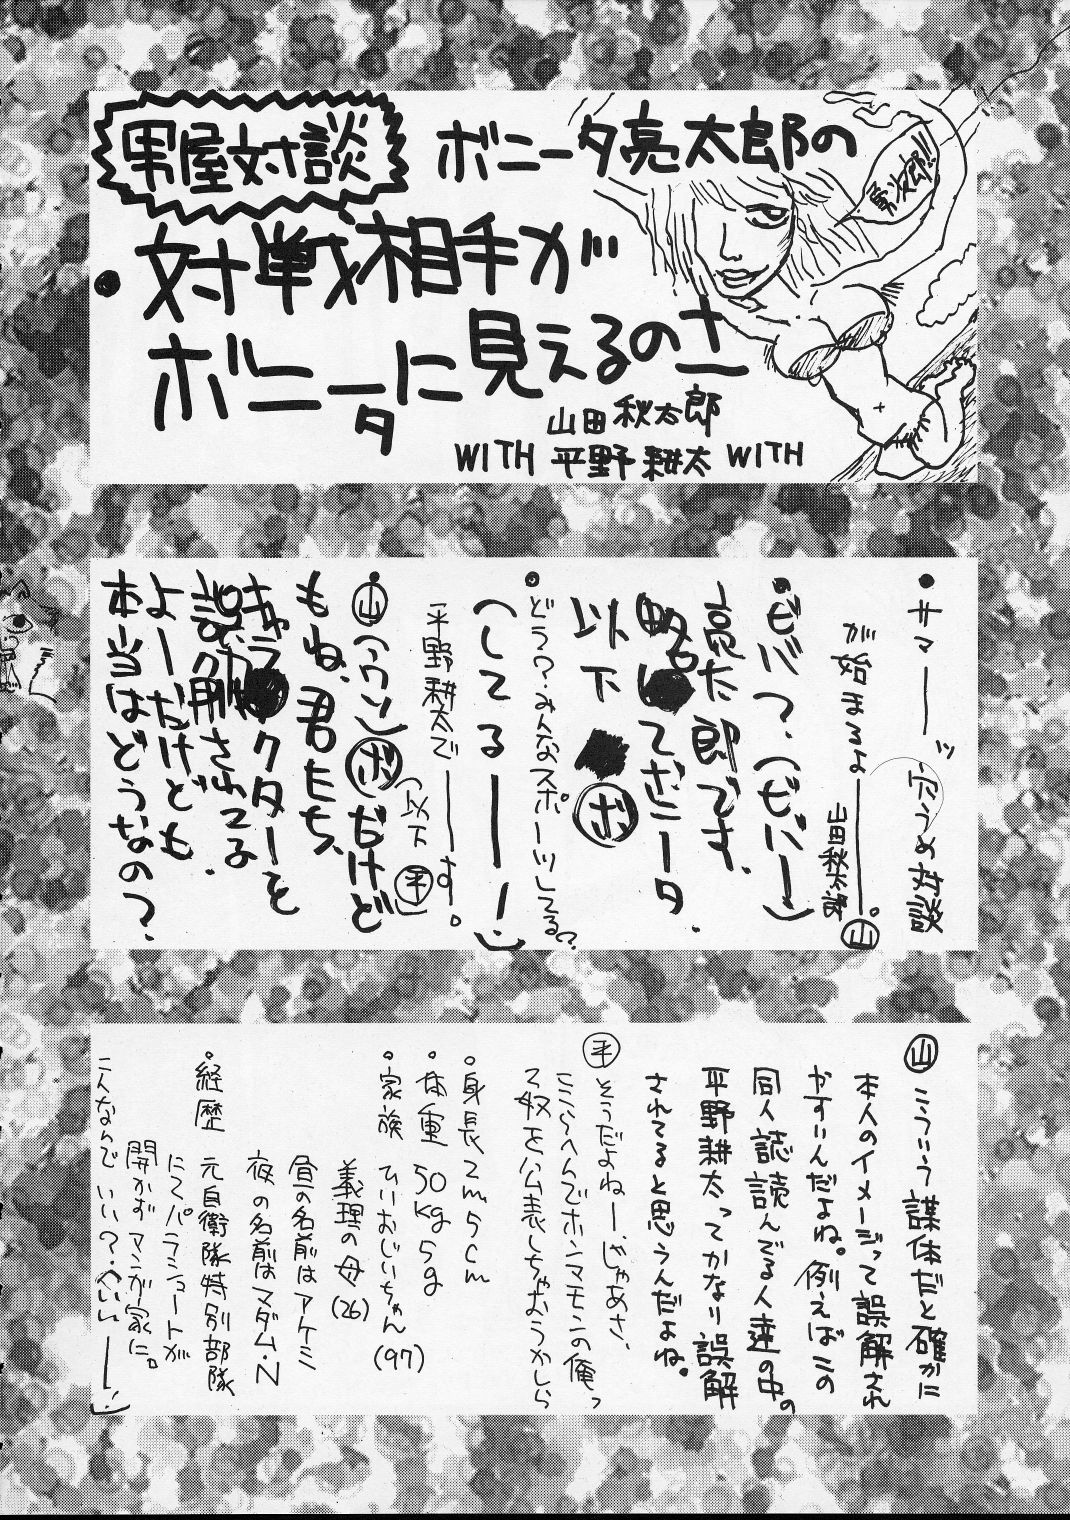 男屋対談
ボニータ亮太郎の
対戦相手が
ボニータに見えるのさ
男次郎!!
山田秋太郎
WITH 平野耕太 WITH
●サマーーッ穴うめ対談
が始まるよーー。㊤
山田秋太郎
●ビバ?(ビバー)
亮太郎です。
略してボニータ.
以下 ボ
●どう?みんなスポーツしてる?
(してるーー!)
平野耕太でーーす。
(以下 平)
山(ウン)ボだけど
もね、君たち、
キャラクターを
誤解されてる
よーだけども
本当はどうなの?
山 こういう謀体だと確かに
本人のイメージって誤解され
やすいんだよね。例えばこの
同人誌読んでる人達の中の
平野耕太ってかなり誤解
されてると思うんだよね。
平 そうだよねー、じゃあさ、
ここらへんでホンマモンの俺っ
て奴を公表しちゃおうかしら
●身長 2m5cm
●体重 50kg5g
●家族 ひいおじいちゃん(97)
義理の母(26)
昼の名前はアケミ
夜の名前はマダム・N
●経歴 元自衛隊特別部隊
にてパラシュートが
開かずマンガ家に。
こんなんでいい?(いいーー!)